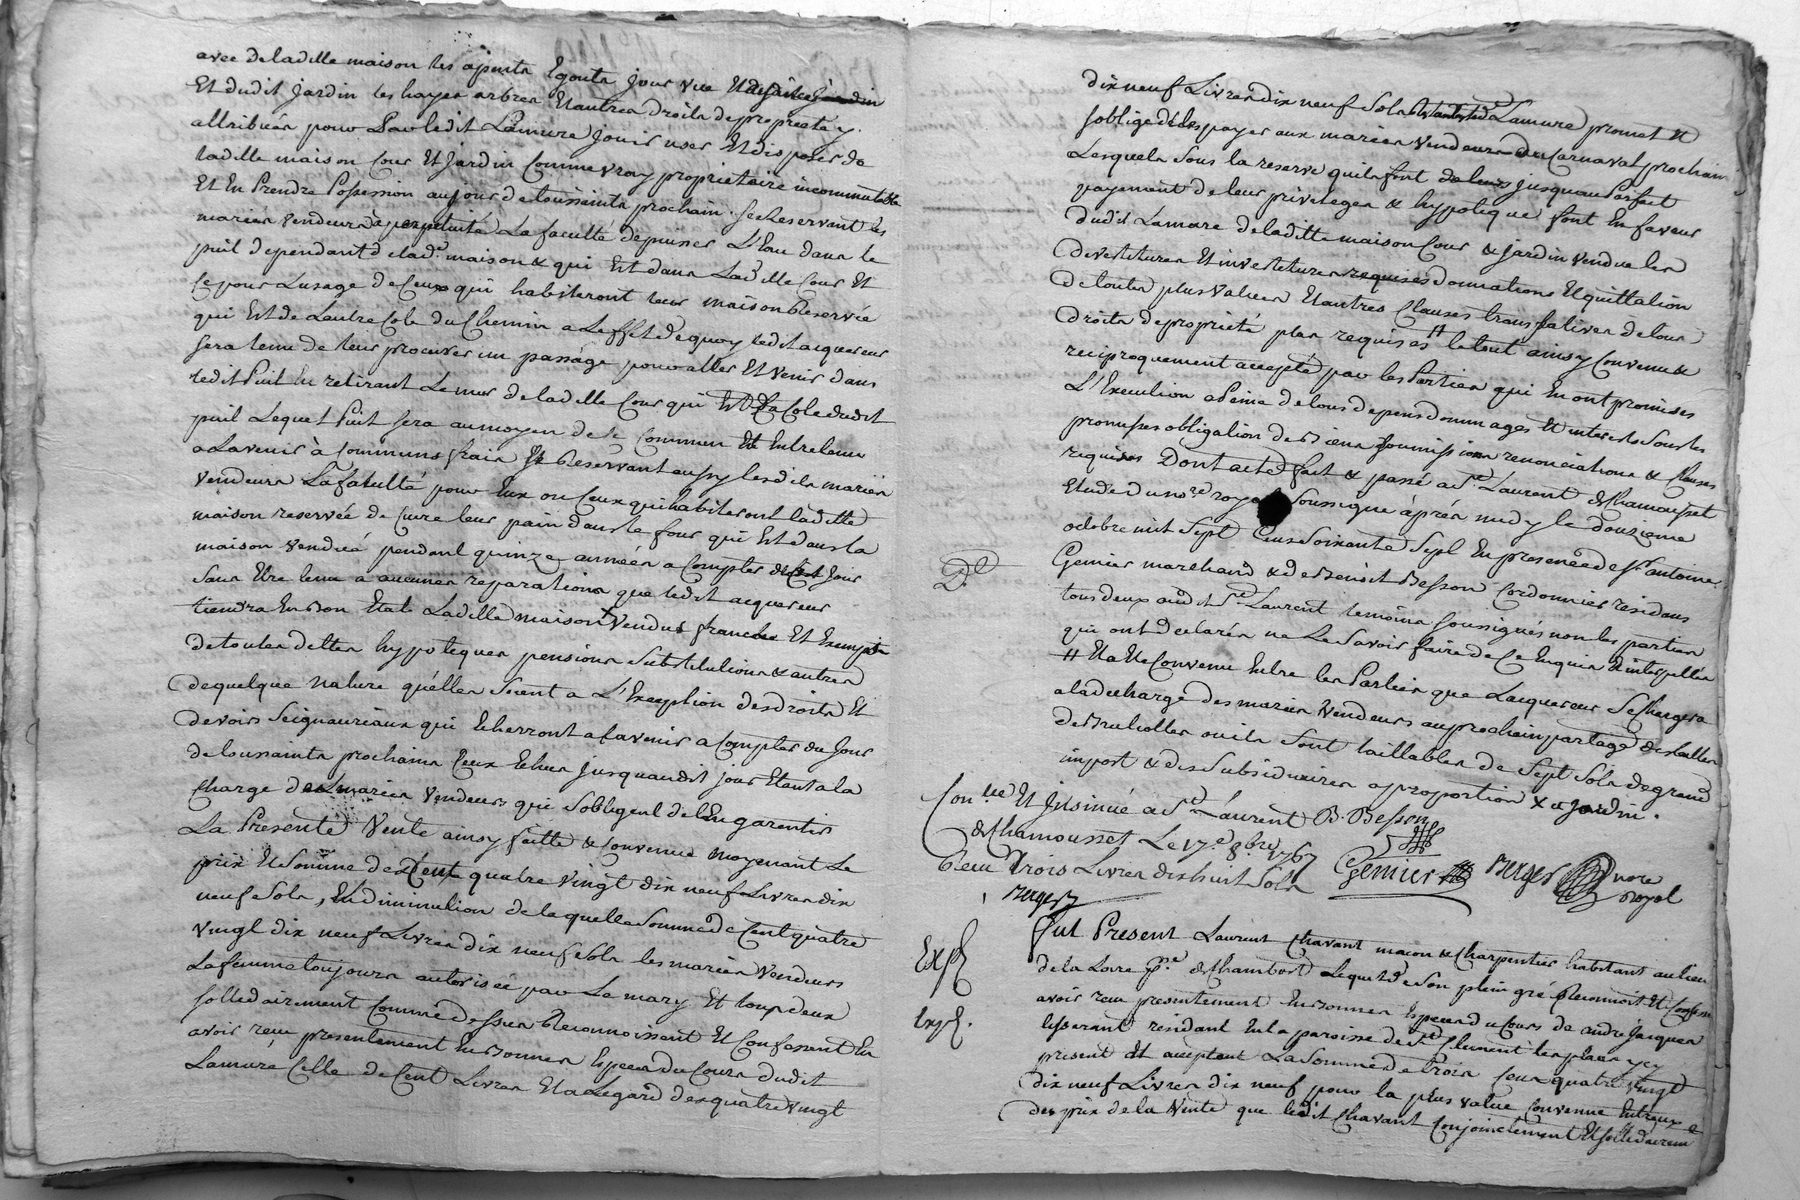 avec de laditte maison les apents Egouts jour vue
Et dudit jardin les hayes arbres Et autres droits de proprieté y
attribués pour Par ledit Lamure jouir user Et disposer de
laditte maison Cour Et jardin Comme vray proprietaire incommutable
Et En Prendre Possession au jour de toussaints prochain. se Reservant les
mariés vendeurs a perpetuité La faculté de puiser L'Eau dans le
puit dependant de lad.e maison & qui Est dans Lad.itte Cour Et
Ce pour L'usage de Ceux qui habiteront leur maison Reservée
qui Est de L'autre Coté du Chemin a L'effet de quoy ledit acquereur
sera tenu de leur procurer un passage pour aller Et venir dans
ledit Puit En retirant Le mur de laditte Cour qui Est a Coté dudit
puit Lequel Puit sera au moyen de Ce Commun Et Entretenu
a L'avenir à Communs fraix se Reservant aussy lesdits mariés
vendeurs La faculté pour Eux ou Ceux qui habiteront laditte
maison reservée de Cuire leur pain dans le four qui Est dans la
maison vendüe pendant quinze années a Compter de Ce jour
sans Etre tenu a aucunes reparations que ledit acquereur
tiendra En Bon Etat Laditte maison x vendus franche Et Exempte
de toutes dettes hypoteques pensions substitutions & autres
de quelque nature qu'elles soient a L'Exception des droits Et
devoirs seigneuriaux qui Echerront a L'avenir a Compter du jour
de toussaints prochains Ceux Echus jusquaudit jour Etant a la
Charge des mariés vendeurs qui s'obligent de l'En garentir
La Presente Vente ainsy faitte & Convenue moyenant Le
prix Et somme de Cent quatre vingt dix neuf Livres dix
neuf sols, En diminution de laquelle somme de Cent quatre
vingt dix neuf Livres dix neuf sols les mariés vendeurs
La femme toujours autorisée par Le mary Et tous deux
sollidairement Comme dessus Reconnoissent Et Confessent En
avoir reçu presentement En Bonnes Especes du Cours dudit
Lamure Celle de Cent Livres Et a L'egard des quatre vingt
dix neuf Livres dix neuf sols restants led. Lamure promet Et
s'oblige de les payer aux mariés vendeurs du Carnaval prochain
Lesquels sous la reserve qu'ils font de leurs jusqu'au Parfait
payement de leur privileges & hypoteque font En faveur
dudit Lamure de laditte maison Cour & jardin vendus les
devestitures Et investitures requises donnations Et quittation
de toutes plus values Et autres Clauses translatives de tous
droits de proprieté plus requises # le tout ainsy Convenu &
reciproquement accepté par les Parties qui En ont promises
L'Execution a Peine de tous depens dommages Et interests sous les
promesses obligation de Biens soumissions renonciations & Clauses
requises Dont acte fait & passé a St. Laurent de Chamousset
Etude du no.re royal soussigné après midy le douzieme
octobre mil sept Cens soixante sept En presence de sr. antoine
Gemier marchand & de Benoit Besson Cordonnier residans
tous deux audit St. Laurent temoins soussignés non les parties
qui ont declarés ne Le savoir faire de Ce Enquis & interpellés
# Et a Eté Convenu Entre les Parties que L'acquereur se Chargera
a la decharge des mariés Vendeurs au prochain partage des tailles
de Brullolles ou ils sont taillables de sept sols de grand
import & des subsidiaires a proportion x & jardin.
De
Con.lle Et Insinué a St. Laurent B. Besson
de Chamousset Le 17.e 8bre 1767
Reçu trois Livres dix huit sols Gemier Berger nore
royal
Berger
Exp.
Exp.
Fut Present Laurent Chavant macon & Charpentier habitant au lieu
de la Loire P.sse de Chambost Lequel de son plein gré Reconnoit Et Confesse
avoir reçu presentement En Bonnes Especes du Cours de andré jaques
tisserant residant En la paroisse de St. Clement les places icy
present Et acceptant La somme de trois Cens quatre vingt
dix neuf Livres dix neuf pour la plus value Convenue Entreux &
des prix de la Vente que ledit Chavant Conjointement Et sollidairem.